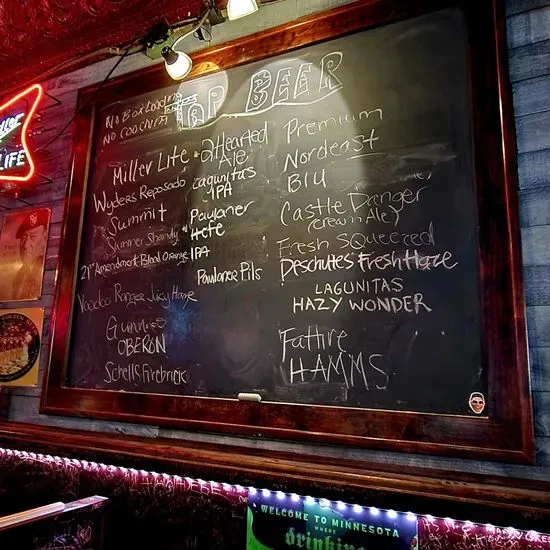 LIFE
No Box Loading
No Coaching
TAP BEER
Miller Lite
Wyders Reposado
Summit
Summer Shandy
21st Amendment Blood Orange IPA
Voodoo Ranger Juicy Haze
Guinness
OBERON
Schells Firebrick
2Hearted
Ale
Lagunitas
IPA
Paulaner
Hefe
Paulaner Pils
Premium
Nordeast
Blu
Castle Danger
(Cream Ale)
Fresh SQueezed
Deschuttes Fresh Haze
LAGUNITAS
HAZY WONDER
Fattire
HAMMS
WELCOME TO MINNESOTA
WHERE